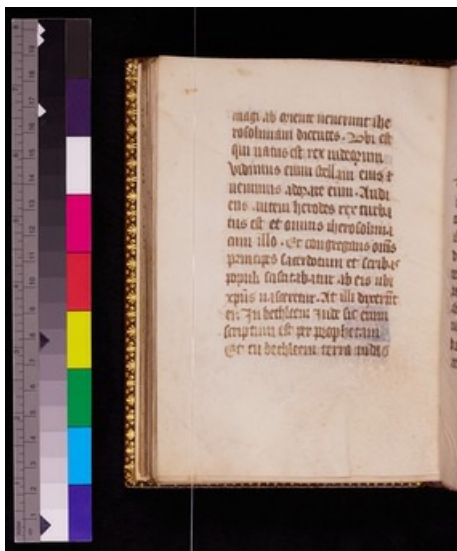 magi ab oriente uenerunt ihe
rosolimam dicentes. Ubi est
qui natus est rex iudeorum
Vidimus enim stellam eius ⁊
uenimus adorare eum. Audi
ens autem herodes rex turba
tus est et omnis iherosolima
cum illo. Et congregans om̄s
principes sacerdotum et scribas
populi sciscitabatur ab eis ubi
xp̄us nasceretur. At illi dixerūt
ei. In bethleem Iude sic enim
scriptum est per prophetam
Et tu bethleem terra iuda